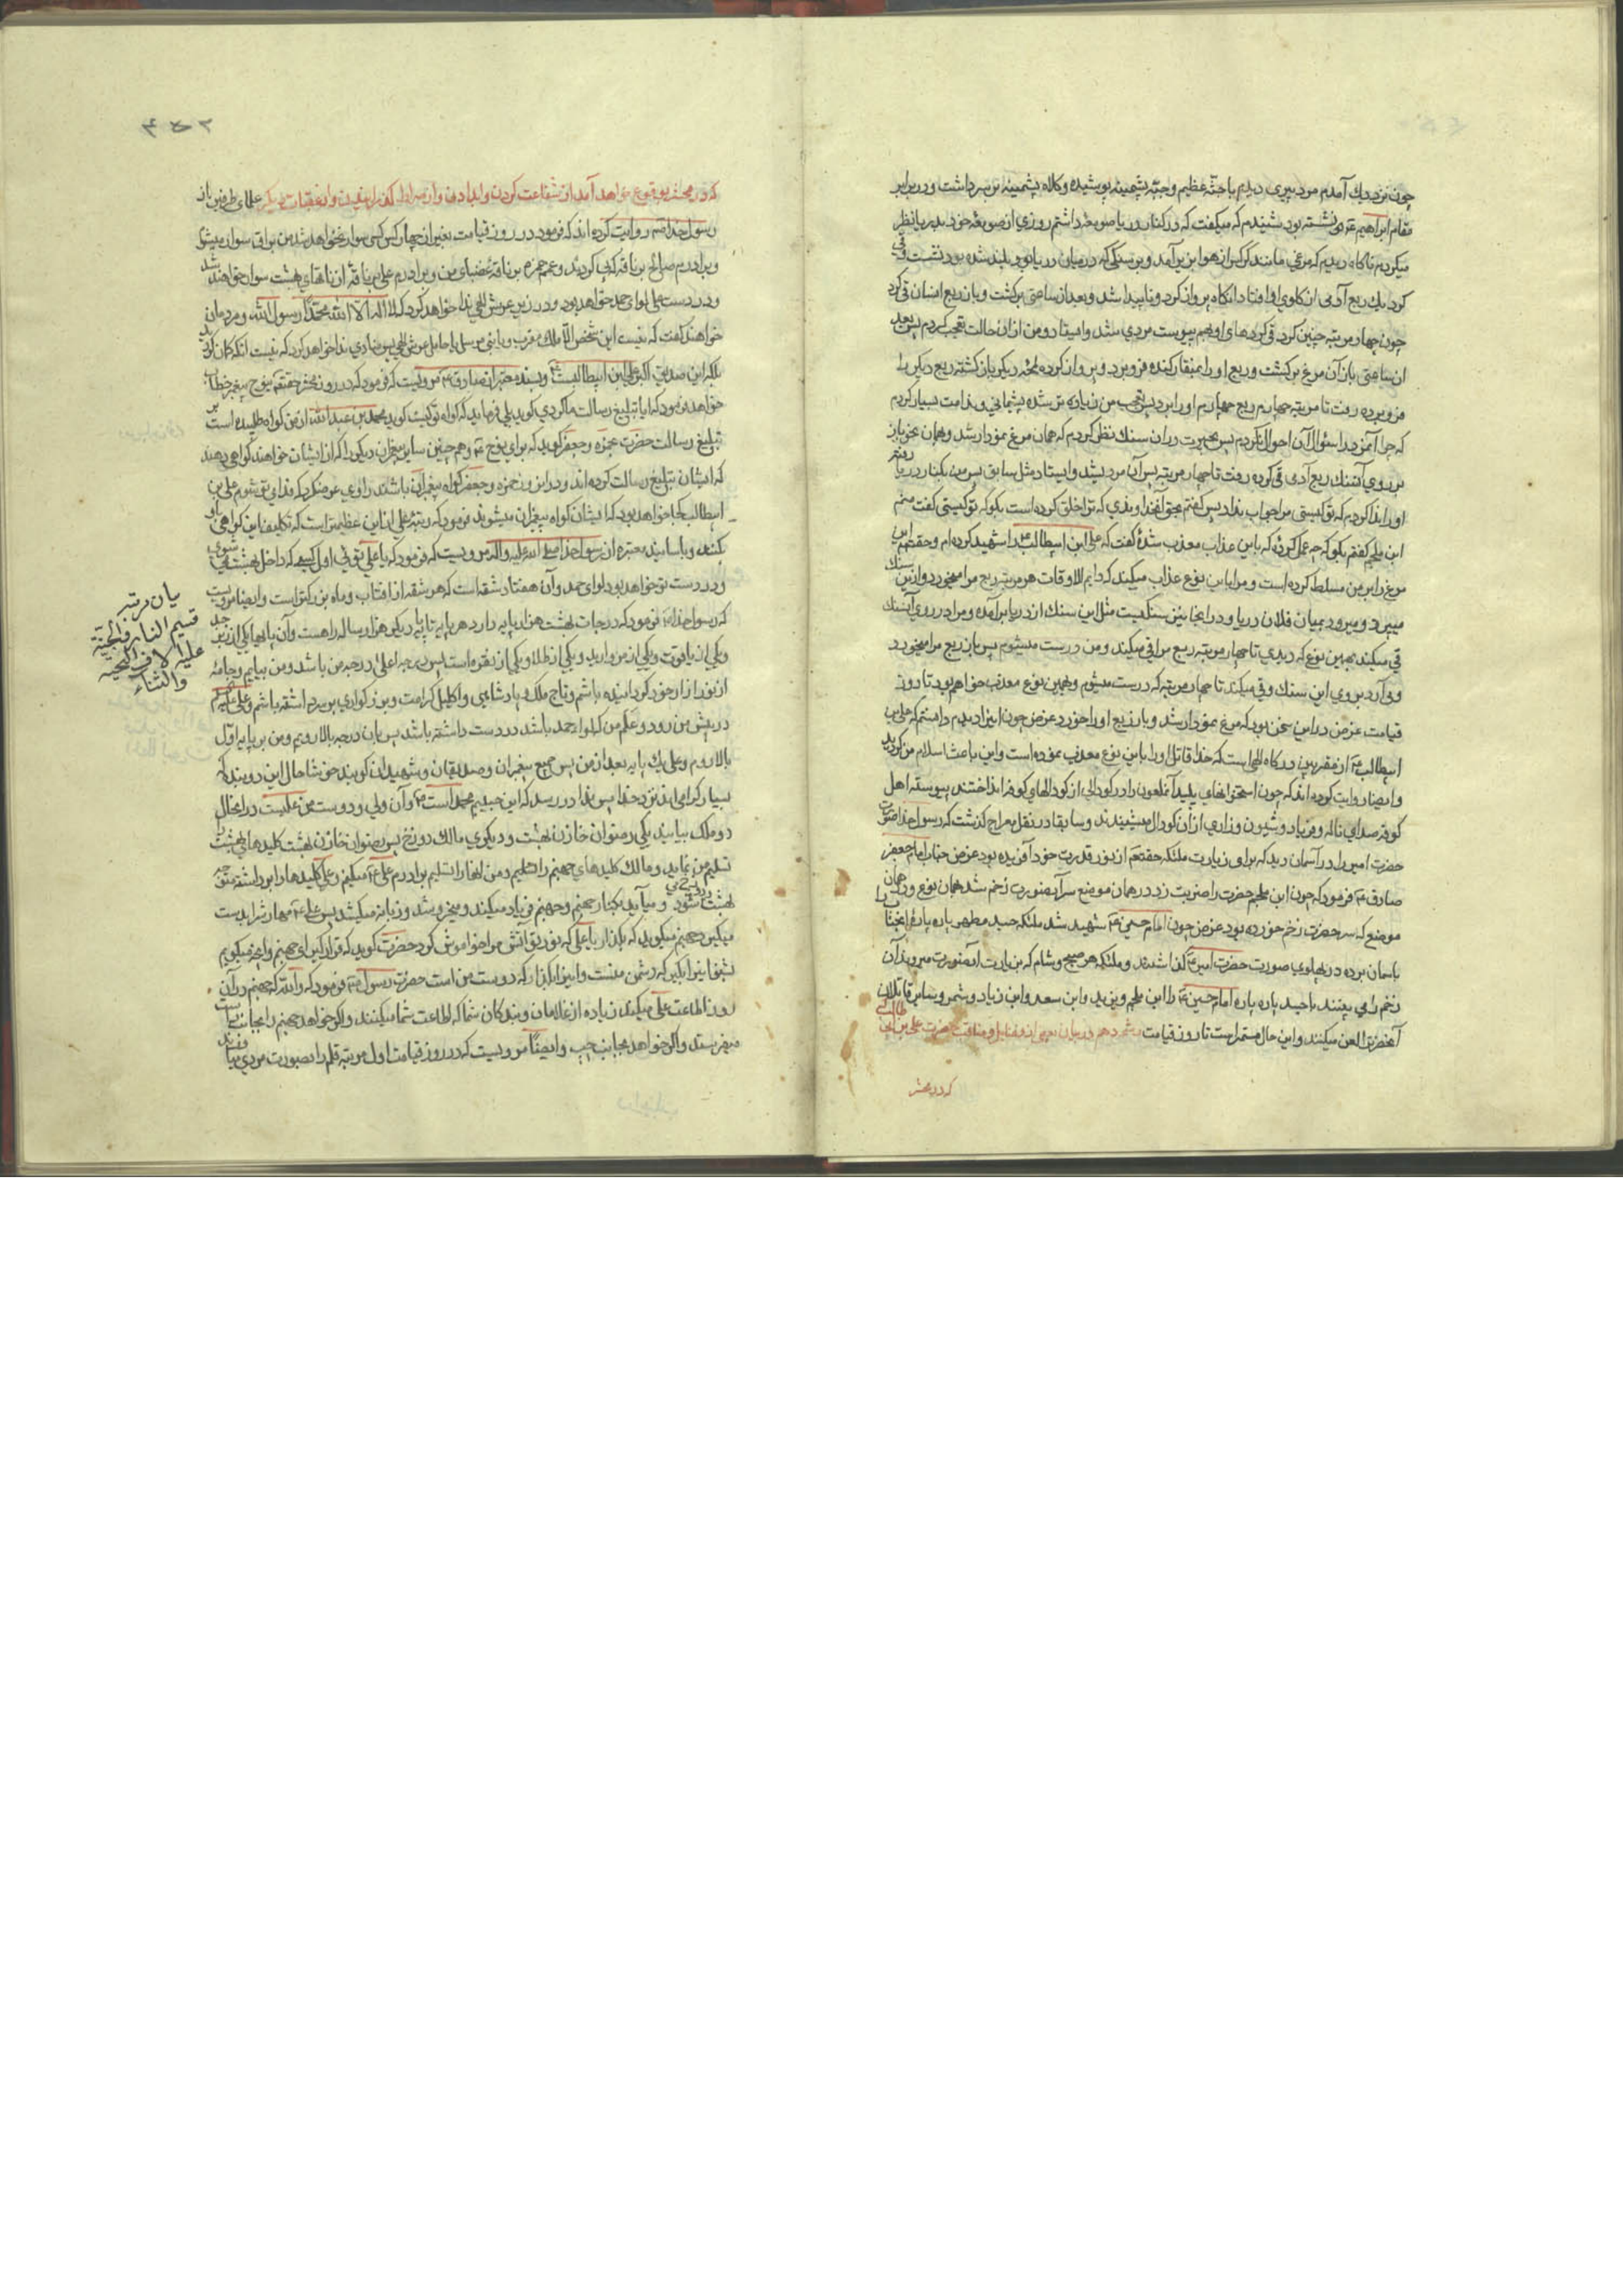 چون نزدیك آمدم مرد پیری دیدم با جثّه عظیم و جبّه پشمینه پوشیده و کلاه پشمینه بر سر داشت و در برابر
مقام ابراهیم نشسته بود شنیدم که میکفت که در کنار دریا صومعه داشتم روزی از صومعه خود بدریا نظر
میکردم ناکاه دیدم که مرغی مانند کرکس از هوا بزیر آمد و بر سنکی که در میان دریا بود بلند شده بود نشست و قی
کرد یك ربع آدمی از کلوی او افتاد انکاه پرواز کرد و ناپیدا شد و بعد از ساعتی برکشت و باز ربع انسان قی کرد
چون چهار مرتبه چنین کرد قی کردهای او بهم پیوست مردی شد و ایستاد و من از ان حالت تعجب کردم پس بعد
از ساعتی باز آن مرغ برکشت و ربع او را بمنقار کنده فرو برد و پرواز کرده لحظه دیکر باز کشته ربع دیکر را
فرو برده رفت تا مرتبه چهارم ربع چهارم او را برد پس تعجب من زیاده تر شده پشیمانی و ندامت بسیار کردم
که چرا آنمرد را سئوال آن احوال نکردم پس بحیرت در ان سنك نظر کردم که همان مرغ نمودار شد و همان نحو باز
بر روی آنسنك ربع آدمی قی کرده رفت تا چهار مرتبه پس آن مرد بشد و ایستاد مثل سابق پس من بکنار دریا رفتم
او را ندا کردم که تو کیستی مرا جواب نداد پس کفتم بحق آنخداوندی که ترا خلق کرده است بکو که تو کیستی کفت منم
ابن ملجم کفتم بکو که چه عمل کردهٔ که باین عذاب معذب شدهٔ کفت که علی ابن ابیطالب را شهید کرده ام و حقتعم این
مرغ را بر من مسلط کرده است و مرا باین نوع عذاب میکند که دایم الاوقات هر مرتبه ربع مرا میخورد و از این سنك
میپرد و میرود بمیان فلان دریا و در انجا نیز سنکیست مثل این سنك از دریا برآمده و مرا در روی آنسنك
قی میکند بهمین نوع که دیدی تا چهار مرتبه ربع مرا قی میکند و من درست میشوم پس باز ربع مرا میخورد
و می آرد بروی این سنك و قی میکند تا چهار مرتبه که درست میشوم و بهمین نوع معذب خواهم بود تا روز
قیامت غرض در این سخن بود که مرغ نمودار شد و باز ربع او را خورد غرض چون اینرا دیدم دانستم که علی بن
ابیطالب از مقربین درکاه الهی است که خدا قاتل او را باین نوع معذب نموده است و این باعث اسلام من کردید
و ایضا روایت کرده اند که چون استخوانهای پلید آنملعون را در کودالی از کودالهای کوفه انداختند پیوسته اهل
کوفه صدای ناله و فریاد و شیون و زاری از ان کودال میشنیدند و سابقا در نقل معراج کذشت که رسول خدا صورت
حضرت امیر را در آسمان دید که برای زیارت ملئکه حقتعم از نور قدرت خود آفریده بود غرض جناب امام جعفر
صادق فرمود که چون ابن ملجم حضرت را ضربت زد در همان موضع سر آنصورت زخم شد همان نوع و در همان
موضع که سر حضرت زخم خورده بود غرض چون امام حسین شهید شد ملئکه جسد مطهر پاره پارهٔ انجناب را
باسمان برده در پهلوی صورت حضرت امیر کذاشتند و ملئکه هر صبح و شام که بزیارت آنصورت میروند آن
زخم را می بینند با جسد پاره پاره امام حسین را ابن ملجم و یزید و ابن سعد و ابن زیاد و شمر و سایر قاتلان
آنحضرت العن میکنند و این حال مستمر است تا روز قیامت در بیان بعضی از فضایل و مناقب حضرت علی بن ابی طالب
که در محشر
که در محشر بوقوع خواهد آمد از شفاعت کردن و لوا دادن و از صراط کذرانیدن و از عقبات دیکر علمای طرفین از
رسول خدا صم روایت کرده اند که فرمود در روز قیامت بغیر از چهار کس کسی سوار نخواهد شد من بر براق سوار میشوم
و برادرم صالح بر ناقه که پی کردند و عمم حمزه بر ناقه غضبای من و برادرم علی بر ناقهٔ از ناقهای بهشت سوار خواهند شد
و در دست علی لوای حمد خواهد بود و در زیر عرش الهی ندا خواهد کرد که لا اله الا الله محمّدا رسول الله و مردمان
خواهند کفت که نیست این شخص الّا ملك مقرب و یا نبی مرسل یا حامل عرش الهی پس منادی ندا خواهد کرد که نیست انکه کمان کردید
بلکه این صدیق اکبر علی ابن ابیطالبست و بسند معتبر از صادق مرویست که فرمود که در روز محشر حقتعم بنوح پیغمبر خطاب
خواهد فرمود که ایا تبلیغ رسالت ما کردی کوید بلی فرماید که کواه تو کیست کوید محمد بن عبد الله از من کواه طلبیده است بر
تبلیغ رسالت حضرت بحمزه و جعفر کوید که برای نوح و همچنین سایر پیغمبران دیکر را که از ایشان خواهند کواهی دهند
که ایشان تبلیغ رسالت کرده اند و در انروز حمزه و جعفر کواه پیغمبران باشند راوی عرض کرد که فدای تو شوم علی بن
ابیطالب کجا خواهد بود که ایشان کواه پیغمبران میشوند فرمود که رتبهٔ علی از این عظیم تر است که تکلیف این کواهی باو
بکنند و باسانید معتبره از رسول خدا صلی الله علیه و اله مرویست که فرمود که یا علی توئی اول کسی که داخل بهشت می شوی
و در دست تو خواهد بود لوای حمد و آن هفتاد شقه است که هر شقه از افتاب و ماه بزرکتر است و ایضا مرویست
که رسول خدا فرمود که درجات بهشت هزار پایه دارد هر پایه تا پایه دیکر هزار ساله راهست و آن پایها یکی از زبرجد
و یکی از یاقوت و یکی از مروارید و یکی از طلا و یکی از نقره است پس درجه اعلی درجه من باشد و من بیایم و جامهٔ
از نور ازار خود کردانیده باشم و تاج ملك و پادشاهی و اکلیل کرامت و بزرکواری بر سر داشته باشم و علی علم
در پیش من رود و علم من که لوا حمد باشد در دست داشته باشد پس بان درجه بالا رویم و من بر پایه اوّل
بالا روم و علی یك پایه بعد از من پس جمیع پیغمبران و صدیقان و شهیدان کویند خوشا حال این دو بنده که
بسیار کرامی اند نزد خدا پس ندا در رسد که این حبیبم محمد است و آن ولی و دوست من علیست در انحال
دو ملك بیایند یکی رضوان خازن بهشت و دیکری مالك دوزخ پس رضوان خازن بهشت کلیدهای بهشت را
تسلیم من نماید و مالك کلیدهای جهنم را تسلیم و من انها را تسلیم برادرم علی میکنم و علی کلیدها را برداشته متوجه
بهشت شود و می آید بکنار جهنم و جهنم فریاد میکند و میخروشد و زبانه میکشد پس علی مهارش را بدست
میکیرد جهنم میکوید که بکذار یا علی که نور تو اتش مرا خواموش کرد حضرت کوید که قرار کیر ای جهنم و انچه میکویم
بشنو اینرا بکیر که دشمن منست و اینرا بکذار که دوست من است حضرت رسول فرمود که والله که جهنم در آن
روز اطاعت علی میکند زیاده از غلامان و بندکان شما که اطاعت شما میکنند و اکر خواهد جهنم را بجانب راست
میفرستد و اکر خواهد بجانب چپ و ایضاً مرویست که در روز قیامت اول مرتبه قلم را بصورت مردی بیاورند
بیان مرتبه
قسیم النار والجنّة
علیه الاف التحیّه
والثناء